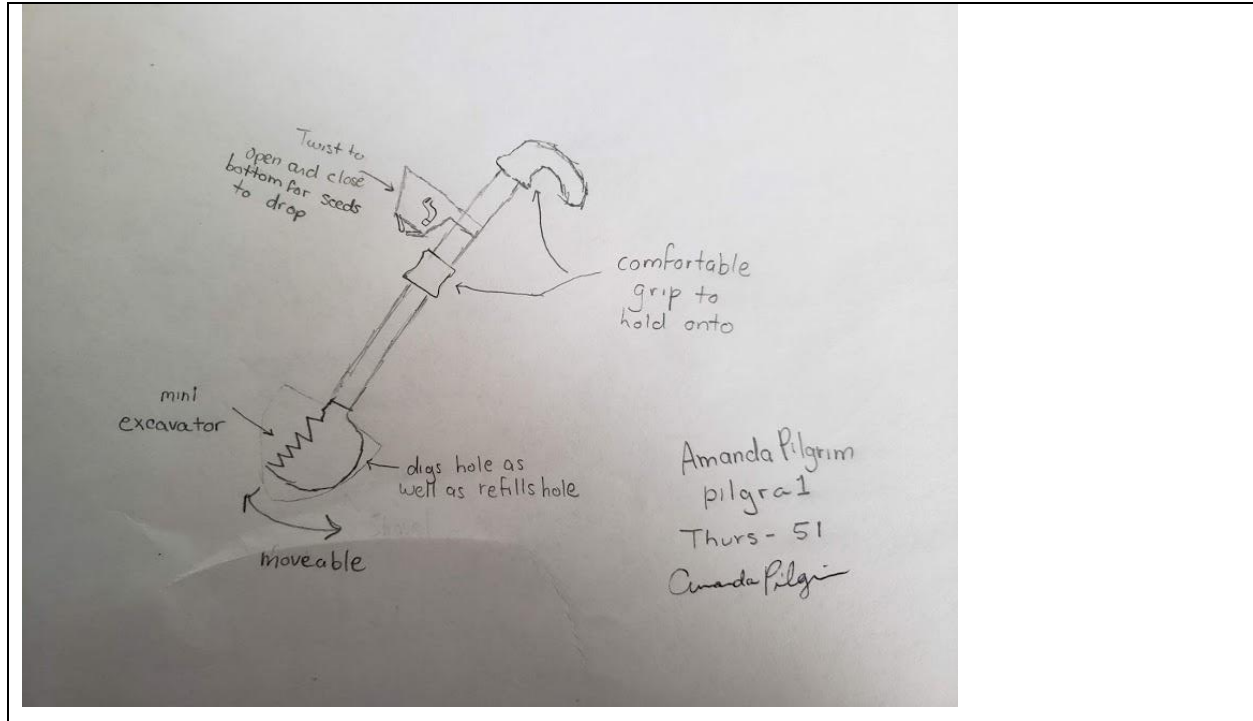 Twist to
open and close
bottom for seeds
to drop
comfortable
grip to
hold onto
mini
excavator
digs hole as
well as refills hole
moveable
Amanda Pilgrim
pilgra1
Thurs - 51
Amanda Pilgrim